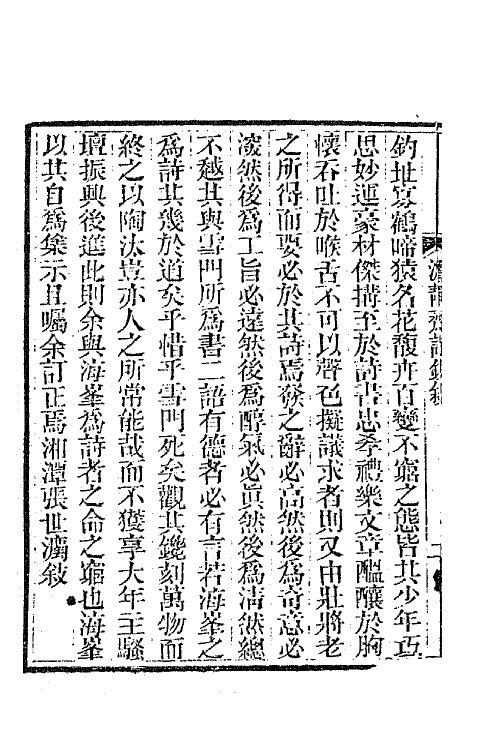 釣址寡鶴啼猿名花馥卉百變不窮之態皆其少年巧
思妙運豪材傑搆至於詩書忠孝禮樂文章醞釀於胸
懷吞吐於喉舌不可以聲色擬議求者則又由壯將老
之所得而要必於其詩焉發之辭必高然後為奇意必
深然後為工旨必遠然後為醇氣必眞然後為清然總
不越其與雲門所為書二語有德者必有言若海峯之
為詩其幾於道矣乎惜乎雲門死矣觀其鑱刻萬物而
終之以陶汰豈亦人之所常能哉而不獲享大年主騷
壇振興後進此則余與海峯為詩者之命之窮也海峯
以其自為集示且囑余訂正焉湘潭張世瀏敍